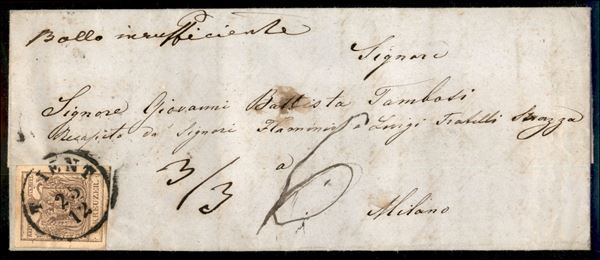 Bollo insufficiente
Signore
Signore Giovanni Battista Tambosi
Recapito da Signori Flaminio e Luigi Fratelli Strazza
3/3
a
6
Milano
TRIENT
23
12
KREUZER